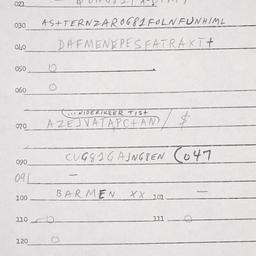 020
030 ASTTERNZAR0G81FOLNFUNHIML
040 DAFMENEPESFATRAXT+
050 O
060 O
(...NIDERIKEER TIST
070 AZEJVATAPC+AN) / $
090 CUG81GAJNGPEN (047
091 —
100 BARMEN XX 101 —
110 —O 111 O
120 O